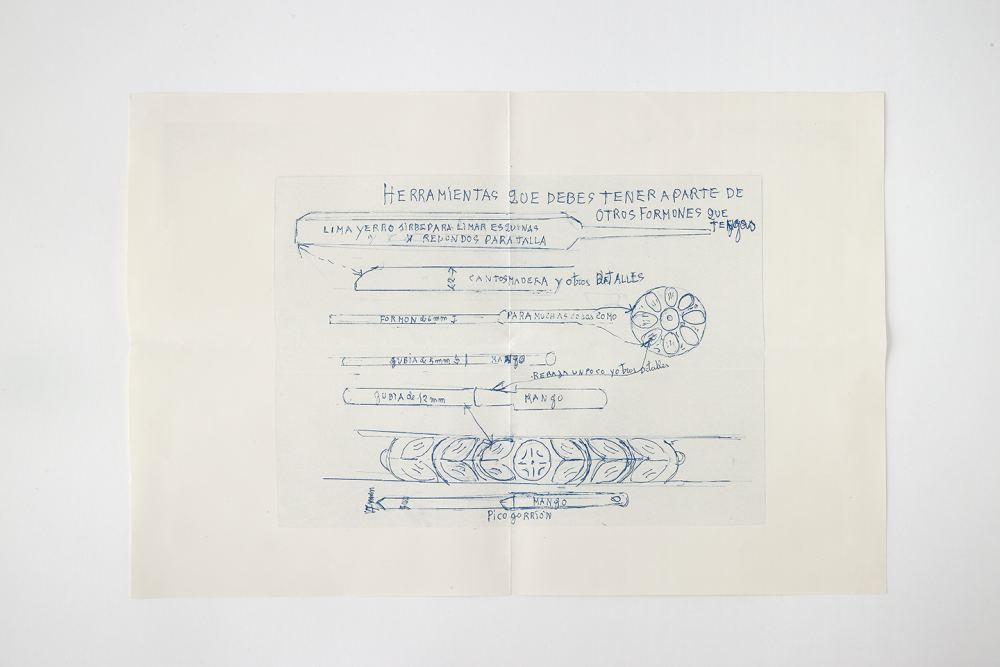 HERRAMIENTAS QUE DEBES TENER APARTE DE
OTROS FORMONES QUE
TENGAS
LIMA YERRO SIRBE PARA LIMAR ESQUINAS
Y REDONDOS PARA TALLA
CANTOS MADERA y otros DETALLES
FORMON de 6 mm
PARA MUCHAS COSAS COMO
GUBIA de 5 mm
MANGO
REBAJA UN POCO y otros detalles
gUBIA de 12 mm
MANGO
MANGO
Pico gorrión